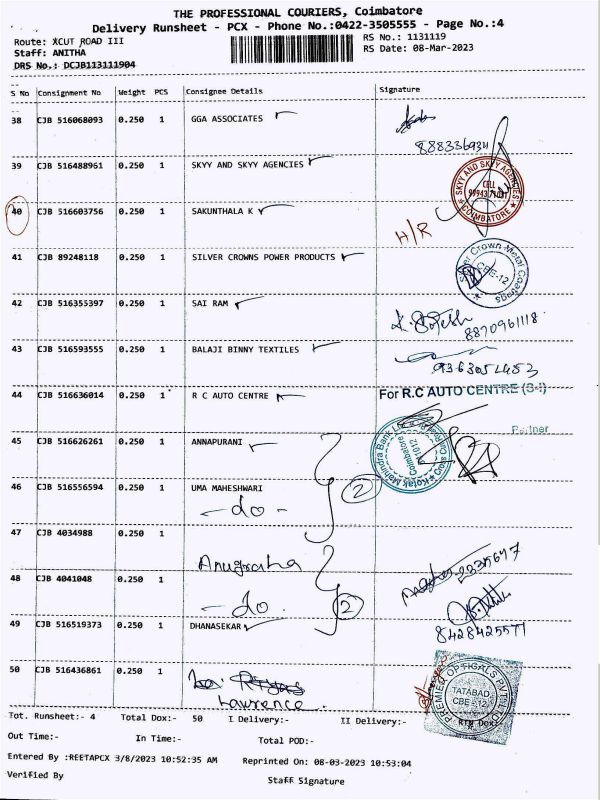 THE PROFESSIONAL COURIERS, Coimbatore
Delivery Runsheet - PCX - Phone No.:0422-3505555 - Page No.:4
Route: XCUT ROAD III
RS No.: 1131119
Staff: ANITHA
RS Date: 08-Mar-2023
DRS No.: DCJB113111904
S No Consignment No Weight PCS Consignee Details Signature
38 CJB 516068093 0.250 1 GGA ASSOCIATES
888336934
39 CJB 516488961 0.250 1 SKYY AND SKYY AGENCIES
SKYY AND SKYY AGENCIES
CELL
COIMBATORE
40 CJB 516603756 0.250 1 SAKUNTHALA K
H/R
41 CJB 89248118 0.250 1 SILVER CROWNS POWER PRODUCTS
Silver Crown Metal Coatings
CBE-12
42 CJB 516355397 0.250 1 SAI RAM
8870961118
43 CJB 516593555 0.250 1 BALAJI BINNY TEXTILES
9363051453
44 CJB 516636014 0.250 1 R C AUTO CENTRE
For R.C AUTO CENTRE
Partner
45 CJB 516626261 0.250 1 ANNAPURANI
Kotak Mahindra Bank
Coimbatore
46 CJB 516556594 0.250 1 UMA MAHESHWARI
- do -
2
47 CJB 4034988 0.250 1
Anugraha
48 CJB 4041048 0.250 1
- do.
2
49 CJB 516519373 0.250 1 DHANASEKAR
8428425577
50 CJB 516436861 0.250 1
Lawrence.
TATABAD
CBE - 12
Tot. Runsheet:- 4 Total Dox:- 50 I Delivery:- II Delivery:- RTN Dox:-
Out Time:- In Time:- Total POD:-
Entered By :REETAPCX 3/8/2023 10:52:35 AM Reprinted On: 08-03-2023 10:53:04
Verified By
Staff Signature